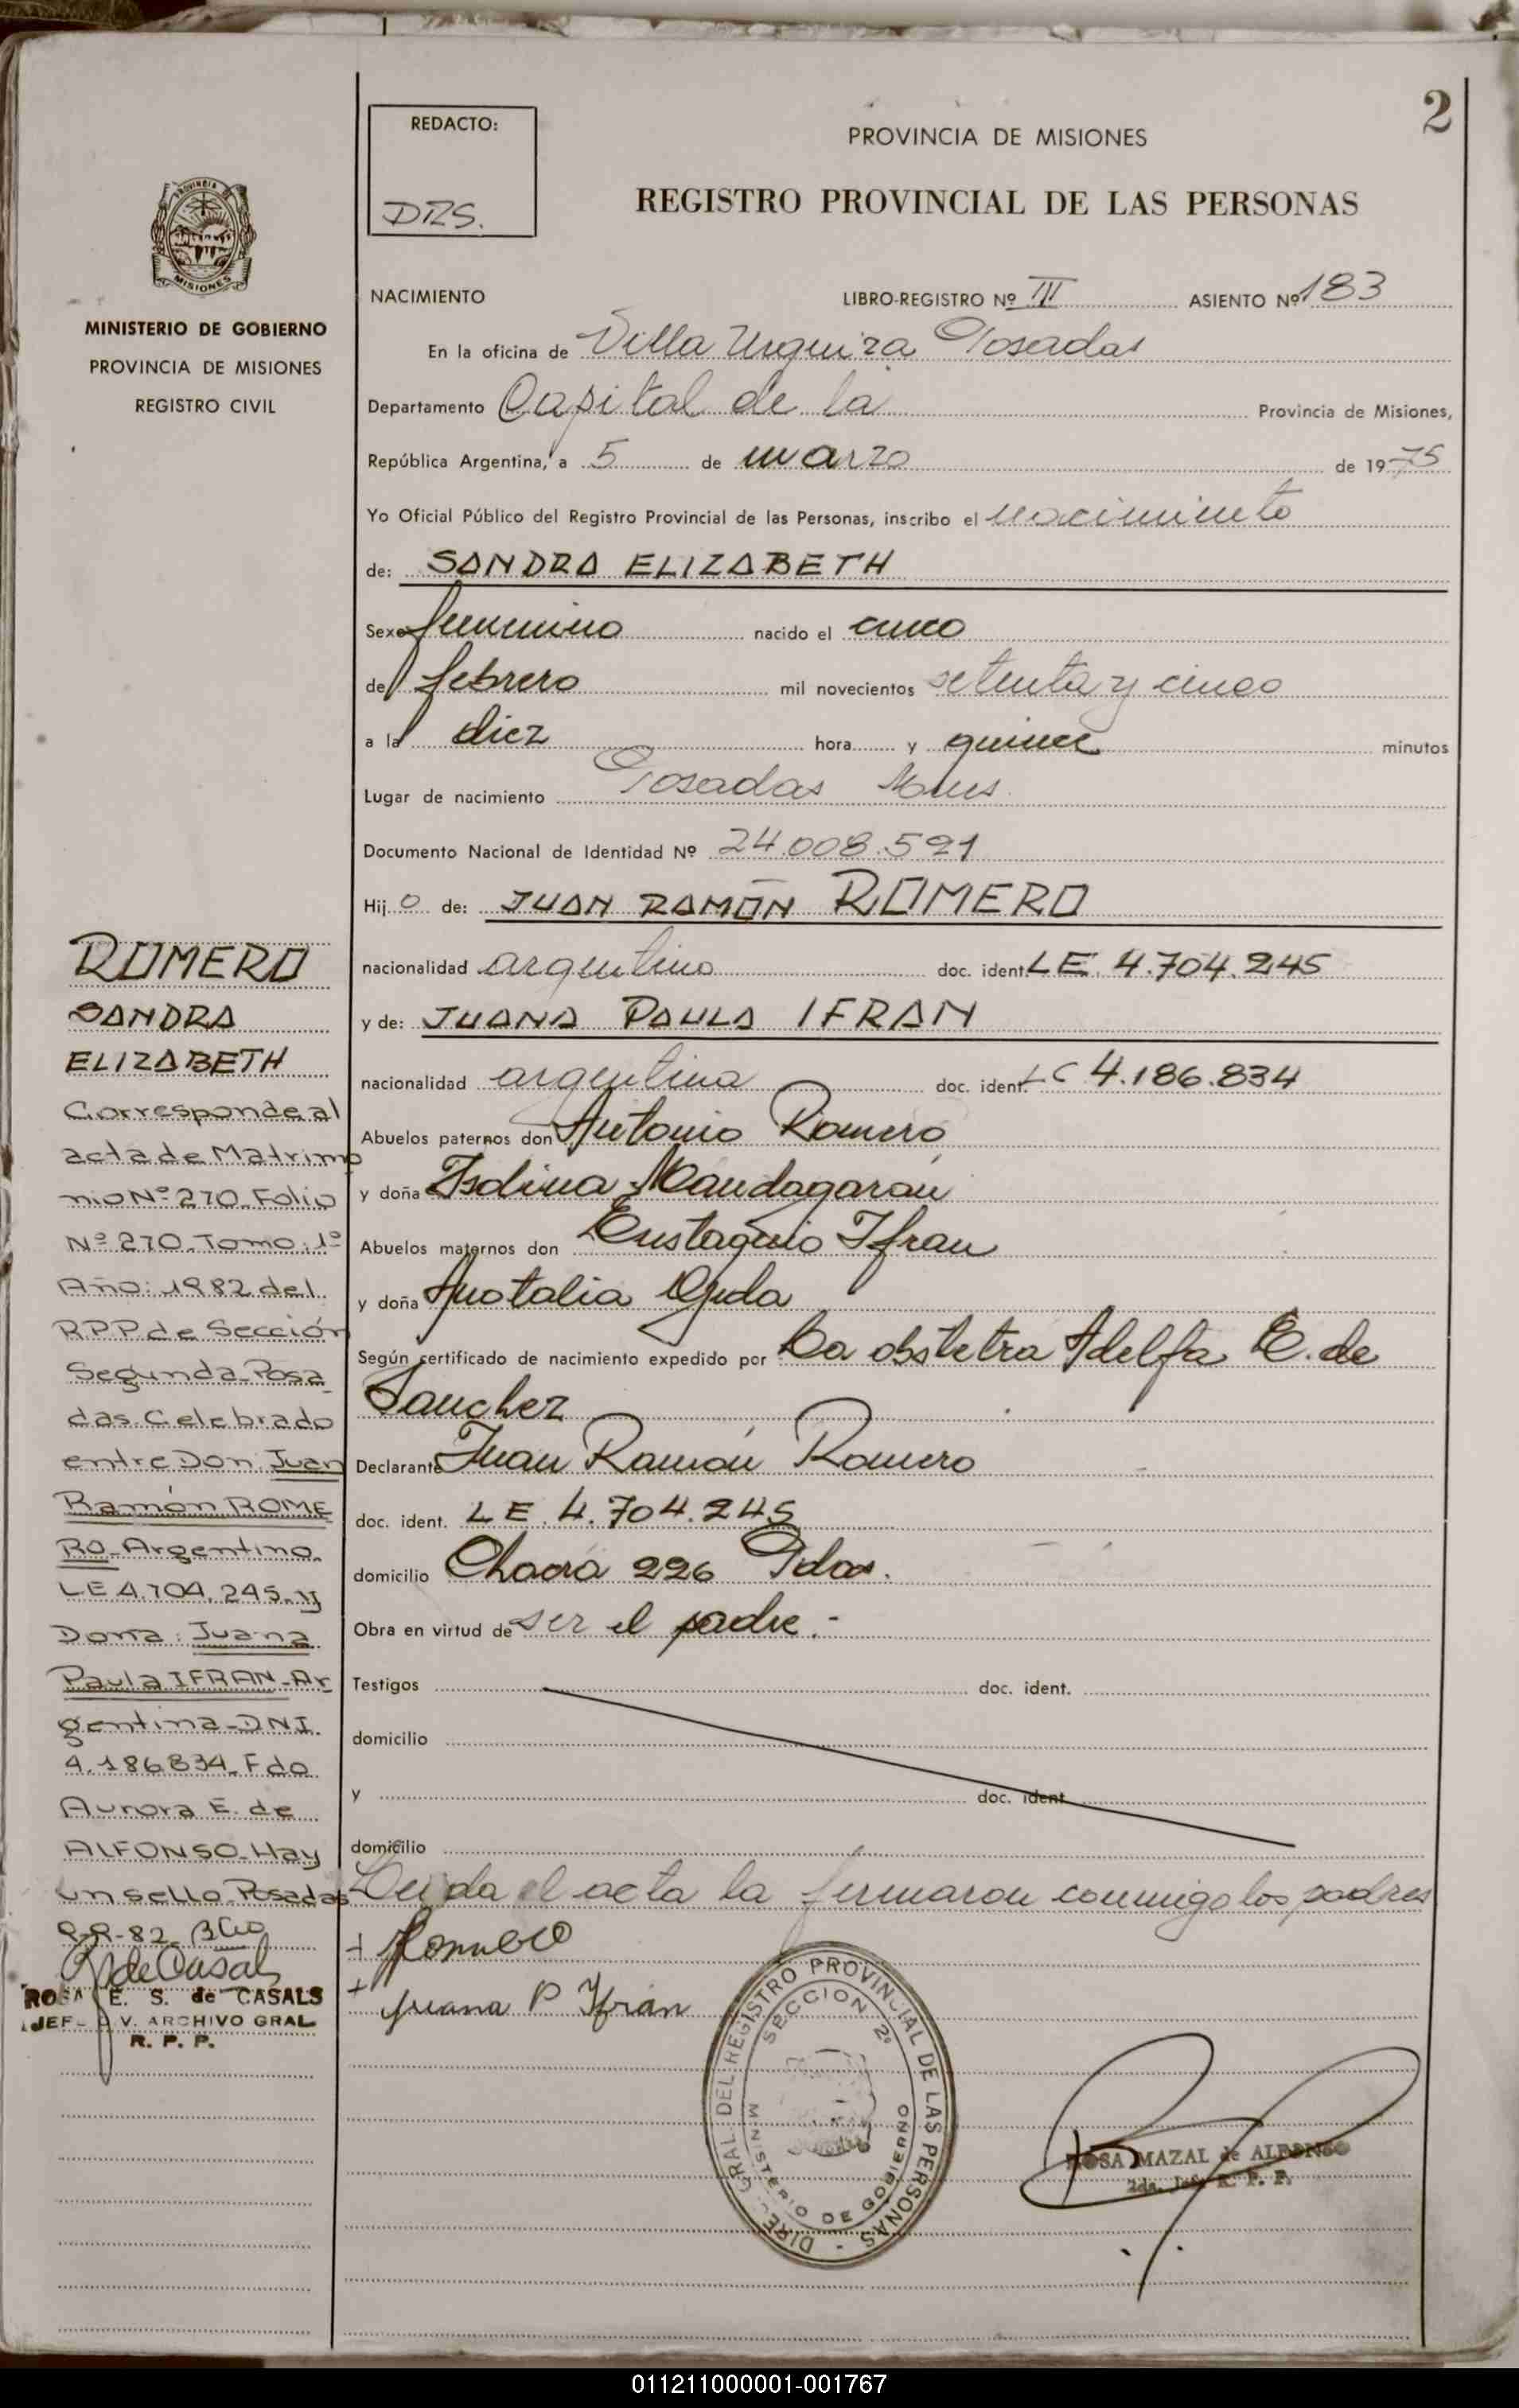 2
REDACTO:
DRS.
PROVINCIA DE MISIONES
REGISTRO PROVINCIAL DE LAS PERSONAS
MISIONES
MINISTERIO DE GOBIERNO
PROVINCIA DE MISIONES
REGISTRO CIVIL
NACIMIENTO LIBRO-REGISTRO Nº III ASIENTO Nº 183
En la oficina de Villa Urquiza Posadas
Departamento Capital de la Provincia de Misiones,
República Argentina, a 5 de marzo de 1975
Yo Oficial Público del Registro Provincial de las Personas, inscribo el nacimiento
de: SANDRA ELIZABETH
Sexo femenino nacido el cinco
de febrero mil novecientos setenta y cinco
a la diez hora y quince minutos
Lugar de nacimiento Posadas Mnes.
Documento Nacional de Identidad Nº 24.008.591
Hij o de: JUAN RAMÓN ROMERO
nacionalidad argentino doc. ident. LE 4.704.245
y de: JUANA PAULA IFRAN
nacionalidad argentina doc. ident. LC 4.186.834
Abuelos paternos don Antonio Romero
y doña Isolina Mandagarán
Abuelos maternos don Eustaquio Ifran
y doña Anotalia Ojeda
Según certificado de nacimiento expedido por La obstetra Adelfa E. de
Sanchez
Declarante Juan Ramón Romero
doc. ident. LE. 4.704.245
domicilio Chacra 226 Pdas.
Obra en virtud de ser el padre.-
Testigos doc. ident.
domicilio
y doc. ident.
domicilio
Leida el acta la firmaron conmigo los padres
+ Romero
+ Juana P Ifrán
ROMERO
SANDRA
ELIZABETH
Corresponde al
acta de Matrimo
nio Nº 270. Folio
Nº 270. Tomo: 1º
Año: 1982 del
R.P.P. de Sección
Segunda. Posa
das. Celebrado
entre Don: Juan
Ramón ROME
RO-Argentino.
LE 4.704.245. y
Doña: Juana
Paula IFRAN-Ar
gentina-DNI.
4.186834. Fdo
Aurora E. de
ALFONSO-Hay
un sello. Posadas
R de Casals
ROSA E. S. de CASALS
JEF- DIV. ARCHIVO GRAL
R. P. P.
DIRE. GRAL. DEL REGISTRO PROVINCIAL DE LAS PERSONAS -
SECCION 2ª
MINISTERIO DE GOBIERNO
ROSA MAZAL de ALFONSO
2da. Jefe R. P. P.
011211000001-001767